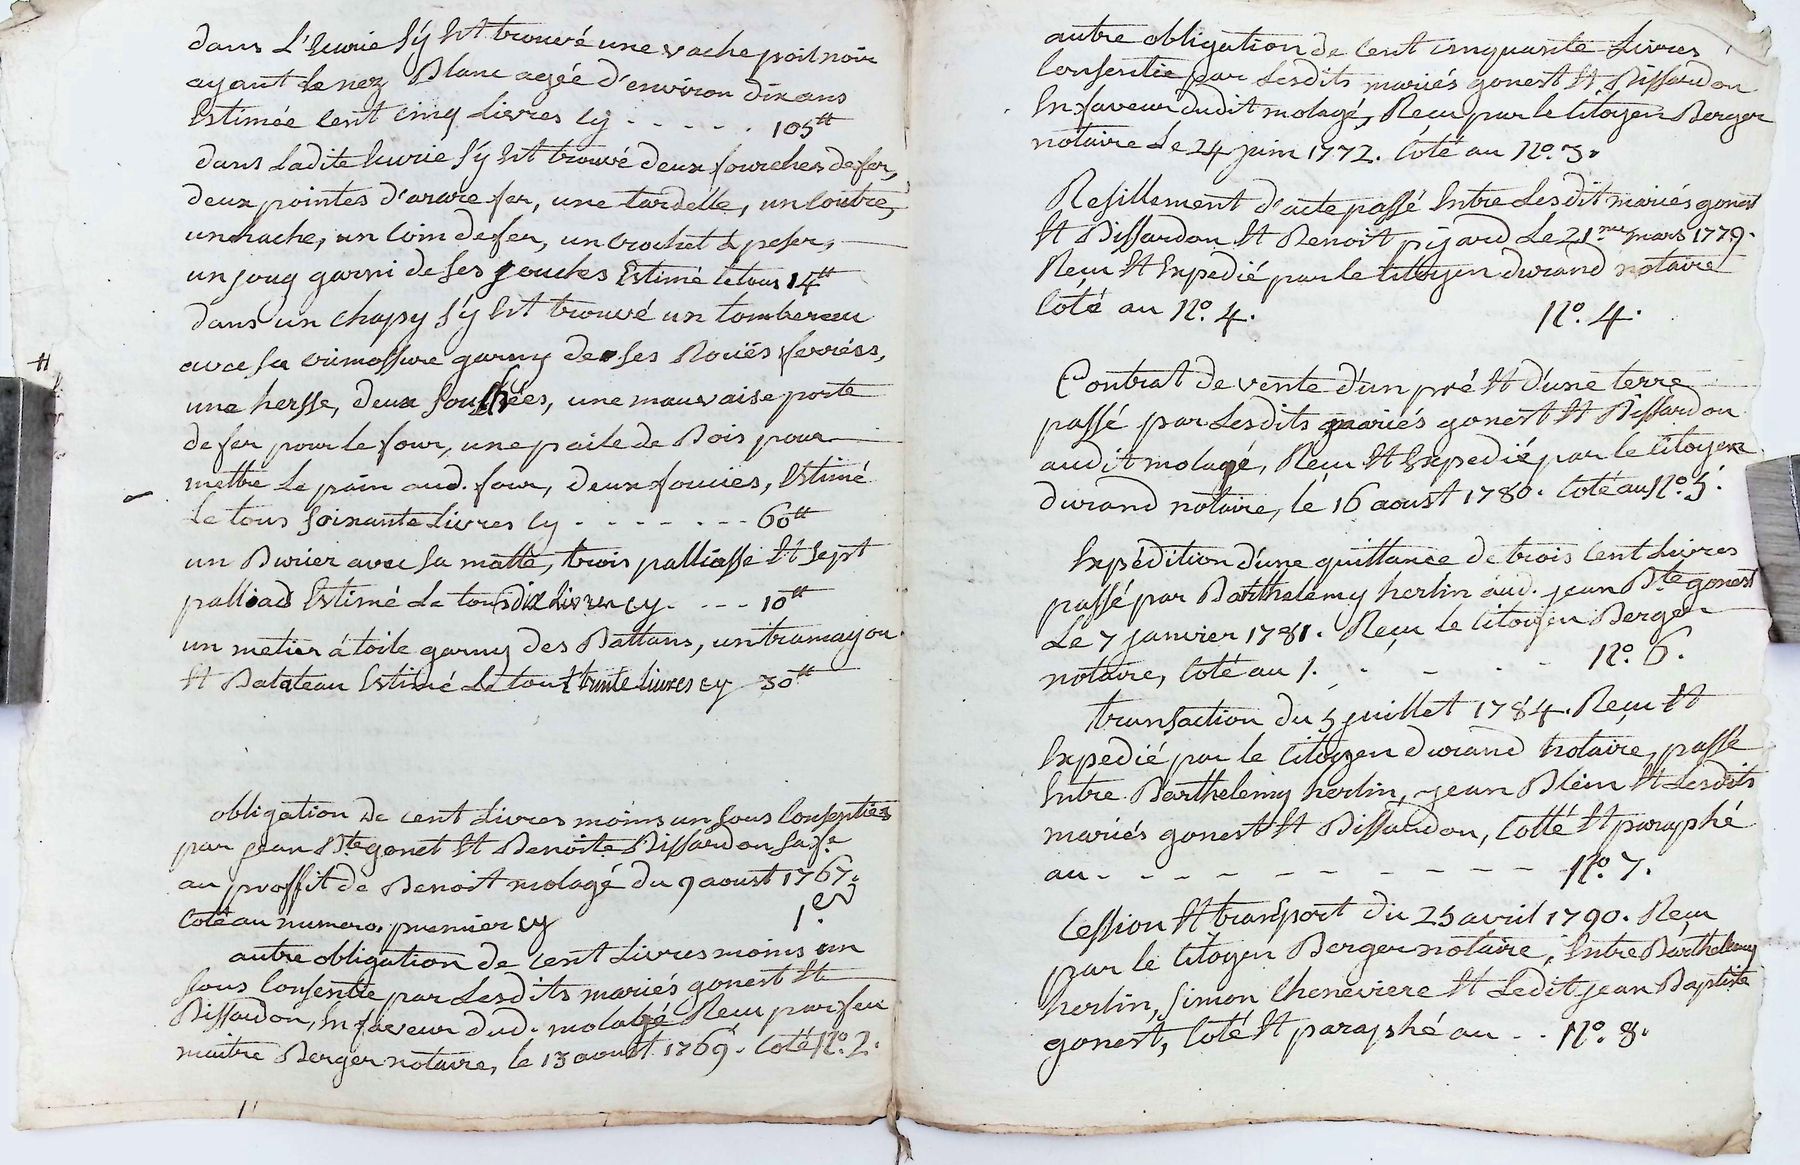 dans L'Ecurie s'y Est trouvé une vache poil noir
ayant Le nez Blanc agée d'environ dix ans
Estimée cent cinq Livres cy - - - - - . 105tt
dans Ladite Ecurie s'y Est trouvé deux fourches de fer,
deux pointes d'araire fer, une tardelle, un Coutre,
un hache, un Coin de fer, un Crochet à peser,
un joug garni de ses jouches Estimé le tous 14tt
dans un chapy s'y Est trouvé un tombereau
avec sa garny de ses Rouës ferréss,
une hersse, deux une mauvaise porte
de fer pour le four, une paile de Bois pour
mettre Le pain aud. four, deux Estimé
Le tous soixante Livres cy - - - - - - - 60tt
un Burier avec sa matte, trois palliasse Et sept
palliads Estimé Le tous dix Livres cy. - - - 10tt
un metier à toile garny des Battans, un tramayou
Et Batateau Estimé Le tout trente Livres cy 30tt
obligation De cent Livres moins un sous Consenties
par jean Bte gonet Et Benoite Bissardon sa fe
au proffit de Benoit molagé du 9 aoust 1767.
Coté au numero premier cy 1er
autre obligation de cent Livres moins un
sous Consentie par Lesdits mariés gonest Et
Bissardon, En faveur dud. molagé Reçu par feu
maitre Berger notaire, le 13 aoust 1769. Coté No. 2.
autre obligation de Cent cinquante Livres
Consentie par Lesdits mariés gonest Et Bissardon
En faveur dudit molagé, Reçu par le Citoyen Berger
notaire Le 24 juin 1772. Coté au No. 3.
Resillement d'acte passé Entre Lesdit mariés gonest
Et Bissardon Et Benoit pijard Le 21me mars 1779.
Reçu Et Expedié par le Citoyen durand notaire
Coté au No. 4. No. 4.
Contrat de vente d'un pré Et d'une terre
passé par Lesdits mariés gonest Et Bissardon
audit molagé, Reçu Et Expedié par le Citoyen
durand notaire, le 16 aoust 1780. Coté au No. 5.
Expédition d'une quittance de trois cent Livres
passé par Barthelémy herlin aud. jean Bte gonest
Le 7 janvier 1781. Reçu le Citoyen Berger
notaire, Coté au 1. - - - - No. 6.
transaction du 5 juillet 1784. Reçu Et
Expedié par le Citoyen durand notaire, passé
Entre Barthelemy herlin, jean Blein Et Lesdits
mariés gonest Et Bissardon, Cotté Et paraphé
au - - - - - - - - - - - No. 7.
Cession Et transport du 25 avril 1790. Reçu
par le Citoyen Berger notaire, Entre Barthelemy
herlin, Simon Cheneviere Et Ledit jean Baptiste
gonest, Coté Et paraphé au - . No. 8.